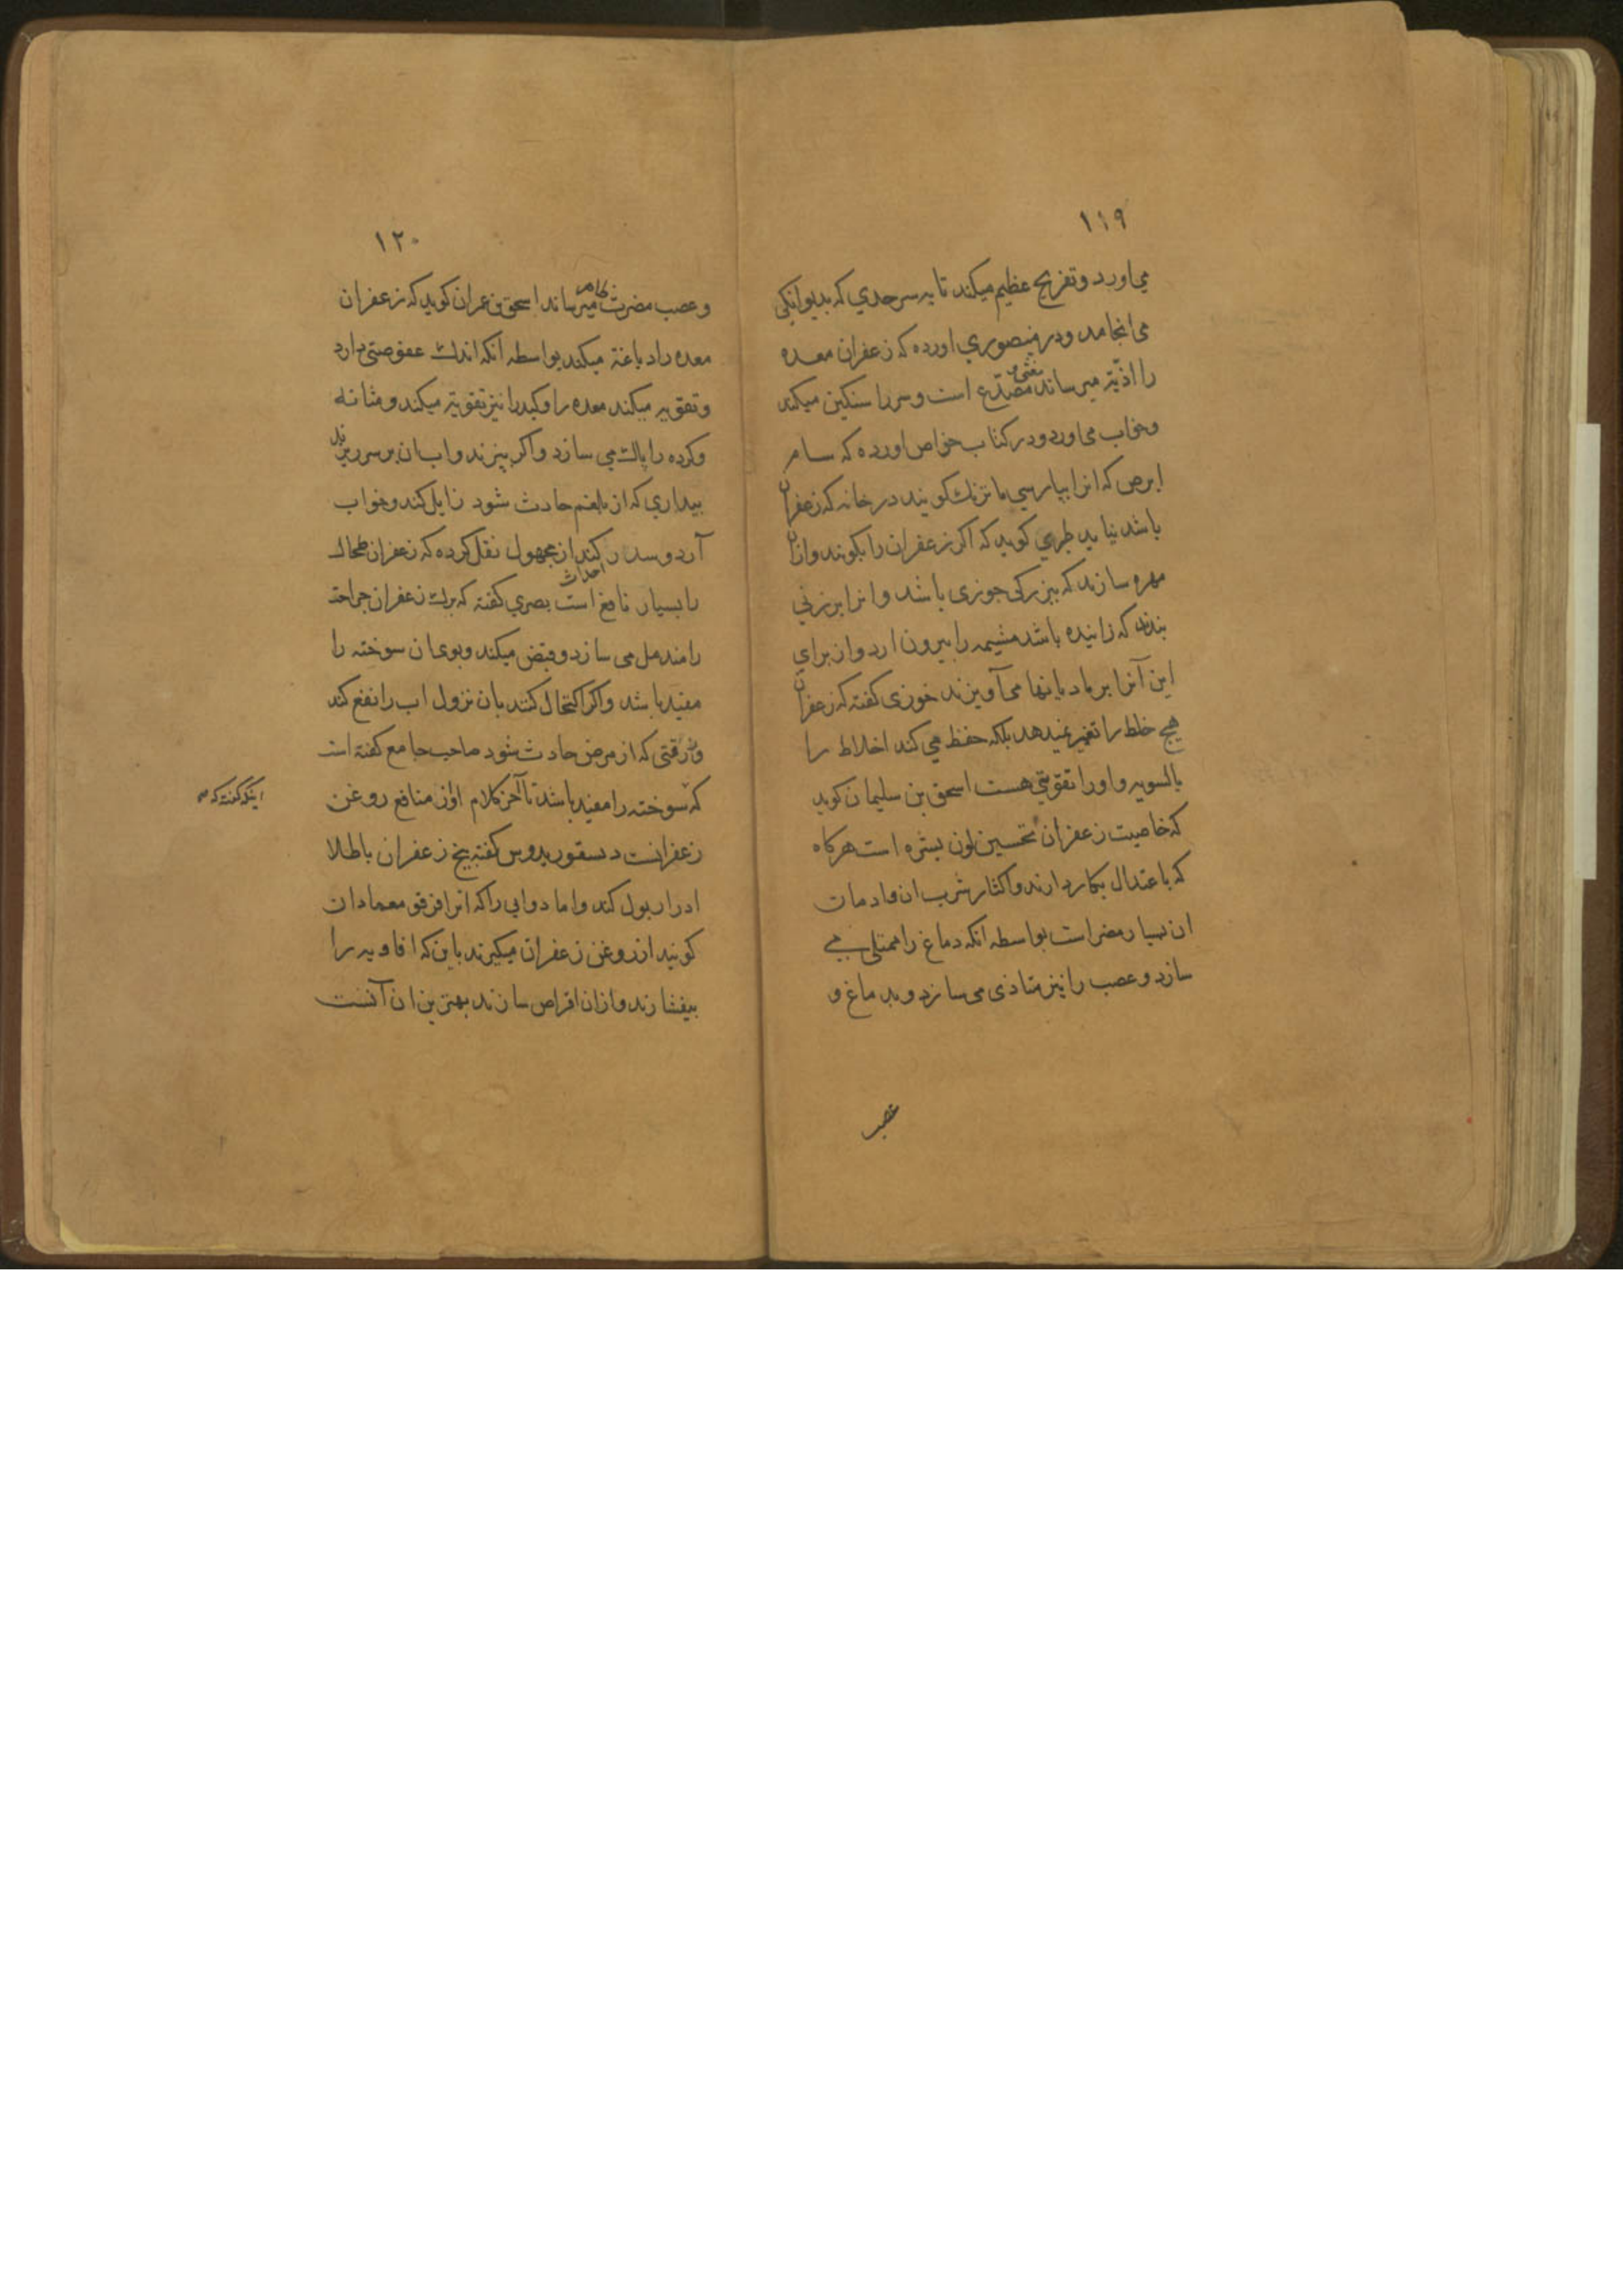 ۱۱۹
می‌اورد و تفریح عظیم میکند تا به سر حدی که بدیوانکی
می انجامد و در منصوری اورده که زعفران معده
را اذیة میرساند مغثی و مصدّع است و سر را سنکین میکند
و خواب می اورد و در کتاب خواص اورده که سام
ابرص که انرا بپارسی ماترنک کویند در خانه که زعفران
باشد نیاید طبری کوید که اکر زعفران را بکوبند و ازان
مهره سازند که ببزرکی جوزی باشد و انرا بر زنی
بندند که زاینده باشد مشیمه را بیرون ارد و از برای
این آنرا بر مادیانها می آویزند خوزی کفته که زعفران
هیچ خلط را تغییر نمیدهد بلکه حفظ می کند اخلاط را
بالسویه و او را تقویتی هست اسحق بن سلیمان کوید
که خاصیت زعفران تحسین لون بشره است هرکاه
که باعتدال بکار دارند و اکثار شرب ان و ادمان
ان بسیار مضر است بواسطه انکه دماغ را ممتلی می
سازد و عصب را نیز متاذی می سازد و بدماغ و
عصب
۱۲۰
و عصب مضرت تمام میرساند اسحق بن عمران کوید که زعفران
معده را دباغة میکند بواسطه آنکه اندک عفوصتی دارد
و تقویه میکند معده را و کبد را نیز تقویة میکند و مثانه
و کرده را پاک می سازد و اکر بپزند و اب ان بر سر ریزند
بیداری که از بلغم حادث شود زایل کند و خواب
آرد و سدر کند از مجهول نقل کرده که زعفران طحال
را بسیار نافع است بصری کفته که برک زعفران جراحة
را مندمل می سازد و قبض میکند و بوی ان سوخته را
مفید باشد و اکر اکتحال کنند بان نزول اب را نفع کند
و زرقتی که از مرض حادث شود صاحب جامع کفته است
که سوخته را مفید باشد تا آخر کلام او از منافع روغن
اینکه کفته که
زعفرانست دسقوریدوس کفته بیخ زعفران باطلا
ادرار بول کند و اما دوایی را که انرا قرقومعما دان
کویند از روغن زعفران میکیرند باین که افاویه را
بیفشارند و ازان اقراص سازند بهترین ان آنست